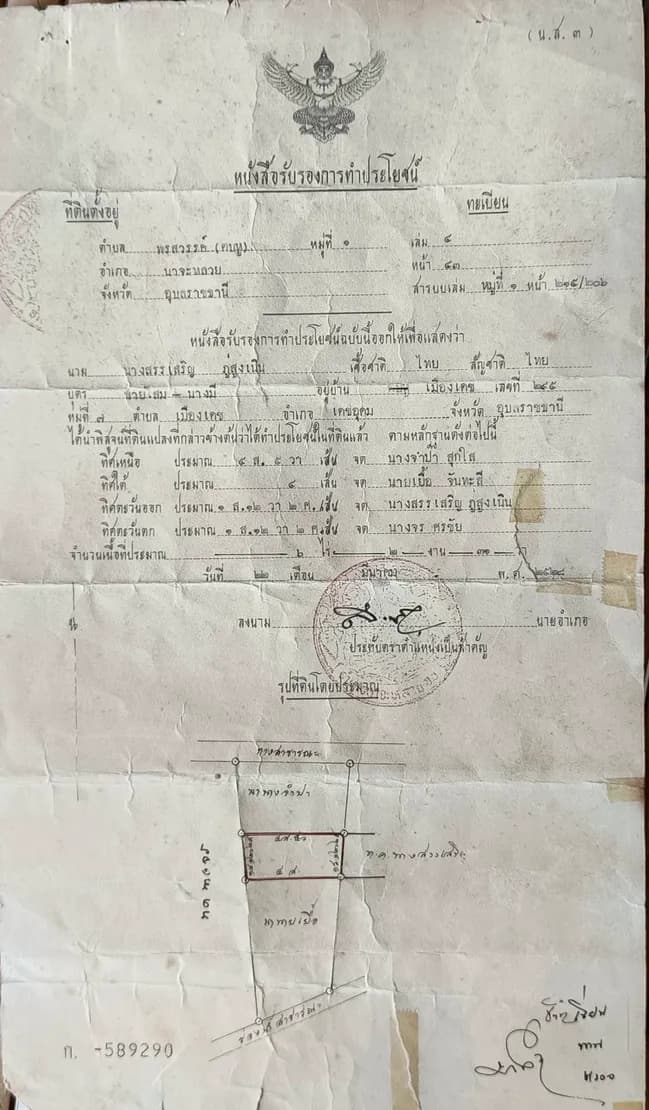 ( น.ส. ๓ )
หนังสือรับรองการทำประโยชน์
ที่ดินตั้งอยู่
ทะเบียน
ตำบล พรสวรรค์ หมู่ที่ ๑ เล่ม ๕
อำเภอ นาจะหลวย หน้า ๔๓
จังหวัด อุบลราชธานี สารบบเล่ม หมู่ที่ ๑ หน้า ๒๑๕/๒๐๖
หนังสือรับรองการทำประโยชน์ฉบับนี้ออกให้เพื่อแสดงว่า
นาม นางสรรเสริญ ภู่สูงเนิน เชื้อชาติ ไทย สัญชาติ ไทย
บุตร นายโสม – นางมี อยู่บ้าน เมืองเดช เลขที่ ๒๔๕
หมู่ที่ ๗ ตำบล เมืองเดช อำเภอ เดชอุดม จังหวัด อุบลราชธานี
ได้นำพิสูจน์ที่ดินแปลงที่กล่าวข้างต้นว่าได้ทำประโยชน์ในที่ดินแล้ว ตามหลักฐานดังต่อไปนี้
ทิศเหนือ ประมาณ ๔ ส. ๕ วา เส้น จด นางจำปา สุกใส
ทิศใต้ ประมาณ ๔ เส้น จด นายเยื้อ จันทะสี
ทิศตะวันออก ประมาณ ๑ ส.๑๒ วา ๒ ศ. เส้น จด นางสรรเสริญ ภู่สูงเนิน
ทิศตะวันตก ประมาณ ๑ ส.๑๒ วา ๒ ศ. เส้น จด นางจร ศรชัย
จำนวนเนื้อที่ประมาณ ๖ ไร่ ๒ งาน ๓๑ วา
วันที่ ๒๒ เดือน มีนาคม พ.ศ. ๒๕๒๘
น
ลงนาม นายอำเภอ
ประทับตราตำแหน่งเป็นสำคัญ
รูปที่ดินโดยประมาณ
ทางสาธารณะ
นานางจำปา
๔ ส. ๕ ว
๔ ส.
นานายเยื้อ
ก. -589290